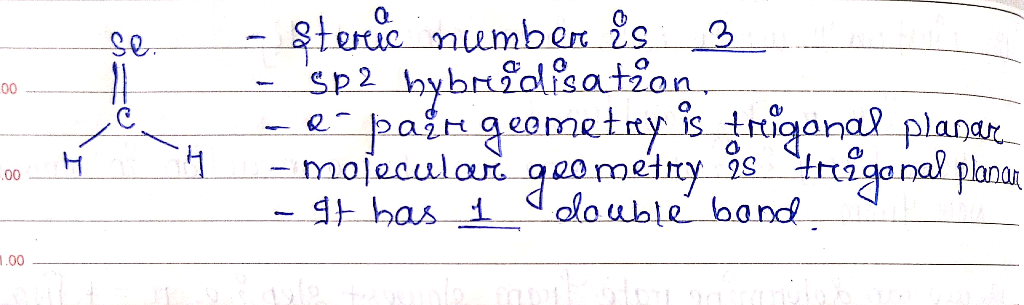 Se - Steric number is 3
- sp2 hybridisation.
C - e- pair geometry is trigonal planar
H H - molecular geometry is trigonal planar
- It has 1 double bond.
.00
.00
1.00